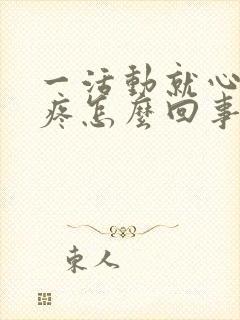 一活動就心
疼怎麼回事
東人